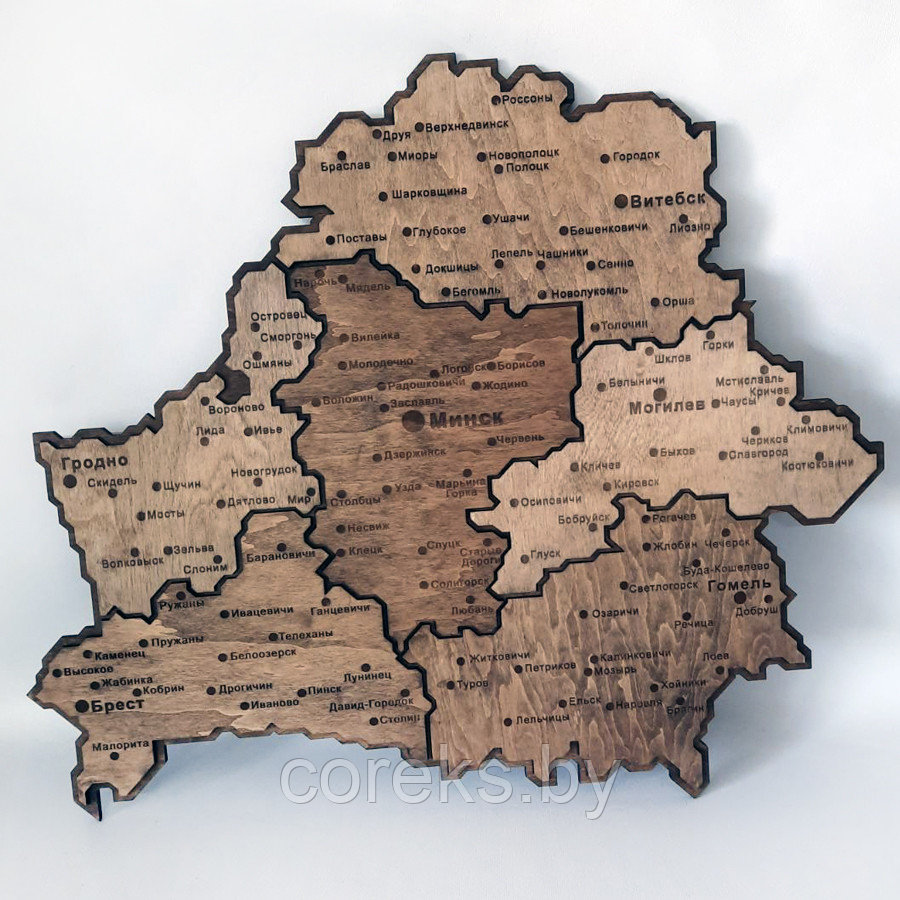 Россоны
Верхнедвинск
Друя
Браслав
Миоры
Новополоцк
Полоцк
Городок
Шарковщина
Витебск
Ушачи
Лиозно
Поставы
Глубокое
Бешенковичи
Докшицы
Лепель
Чашники
Сенно
Бегомль
Новолукомль
Орша
Толочин
Нарочь
Мядель
Вилейка
Молодечно
Логойск
Борисов
Радошковичи
Жодино
Воложин
Заславль
Минск
Червень
Дзержинск
Столбцы
Узда
Марьина
Горка
Несвиж
Клецк
Слуцк
Старые
Дороги
Солигорск
Любань
Островец
Сморгонь
Ошмяны
Вороново
Лида
Ивье
Гродно
Скидель
Щучин
Новогрудок
Дятлово
Мир
Мосты
Волковыск
Зельва
Слоним
Шклов
Горки
Белыничи
Могилев
Мстиславль
Кричев
Чаусы
Климовичи
Чериков
Славгород
Костюковичи
Быхов
Кличев
Кировск
Осиповичи
Бобруйск
Глуск
Барановичи
Ружаны
Ивацевичи
Ганцевичи
Пружаны
Телеханы
Каменец
Белоозерск
Высокое
Жабинка
Кобрин
Дрогичин
Пинск
Лунинец
Брест
Иваново
Давид-Городок
Столин
Малорита
Рогачев
Жлобин
Чечерск
Буда-Кошелево
Светлогорск
Гомель
Озаричи
Речица
Добруш
Житковичи
Петриков
Калинковичи
Мозырь
Лоев
Туров
Хойники
Ельск
Наровля
Брагин
Лельчицы
coreks.by